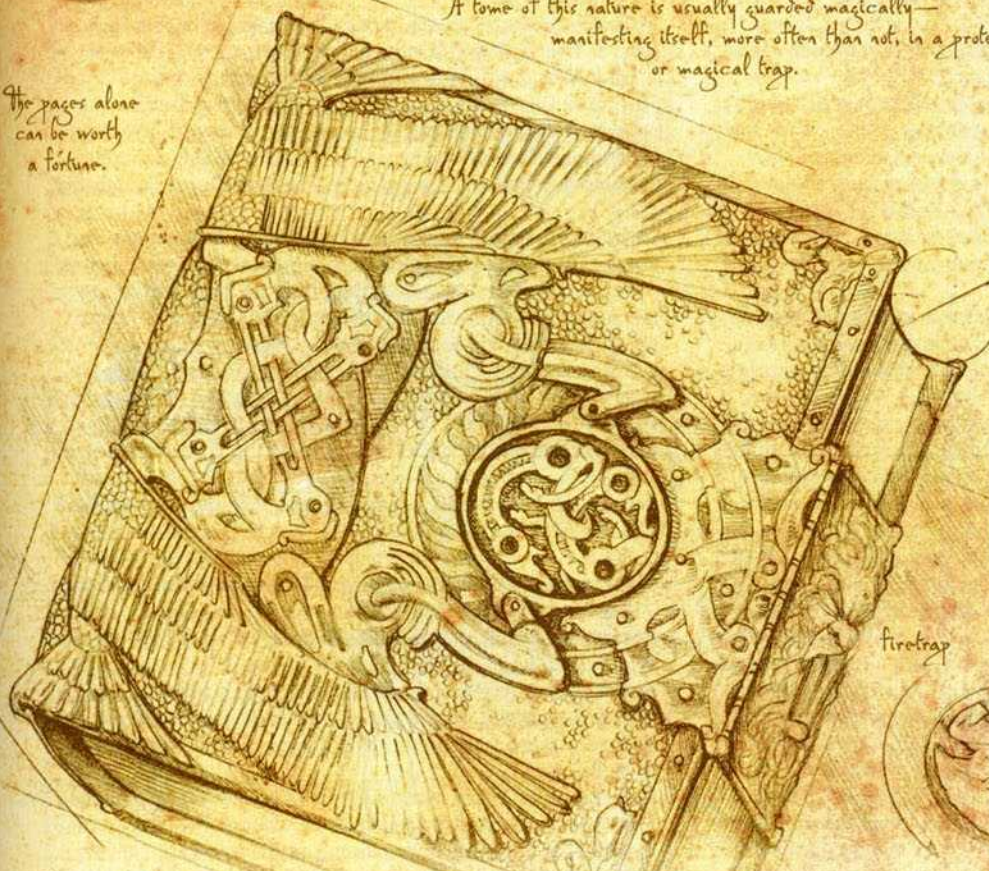 A tome of this nature is usually guarded magically—
manifesting itself, more often than not, in a prote
or magical trap.
The pages alone
can be worth
a fortune.
firetrap